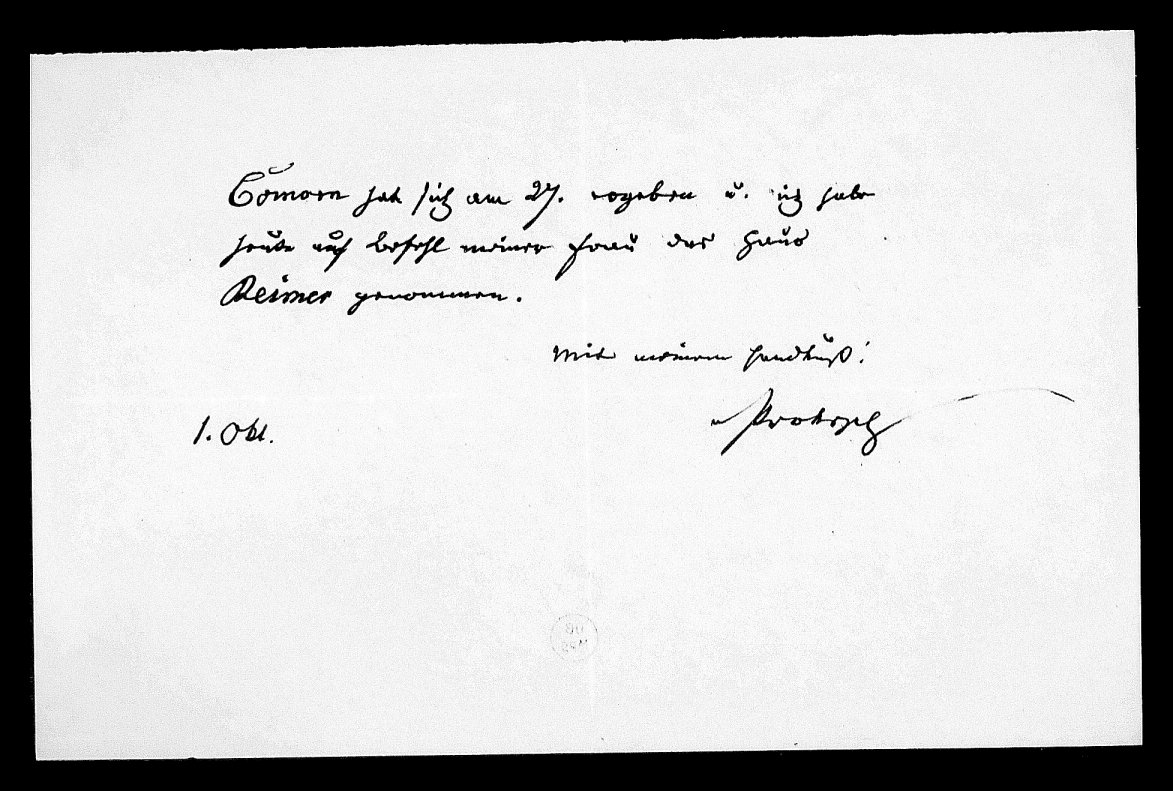 Comorn hat sich am 27. ergeben u. ich habe
heute auf Befehl meiner Frau das Haus
Reimer genommen.
Mit meinem Handkuß!
Prokesch
1. Okt.